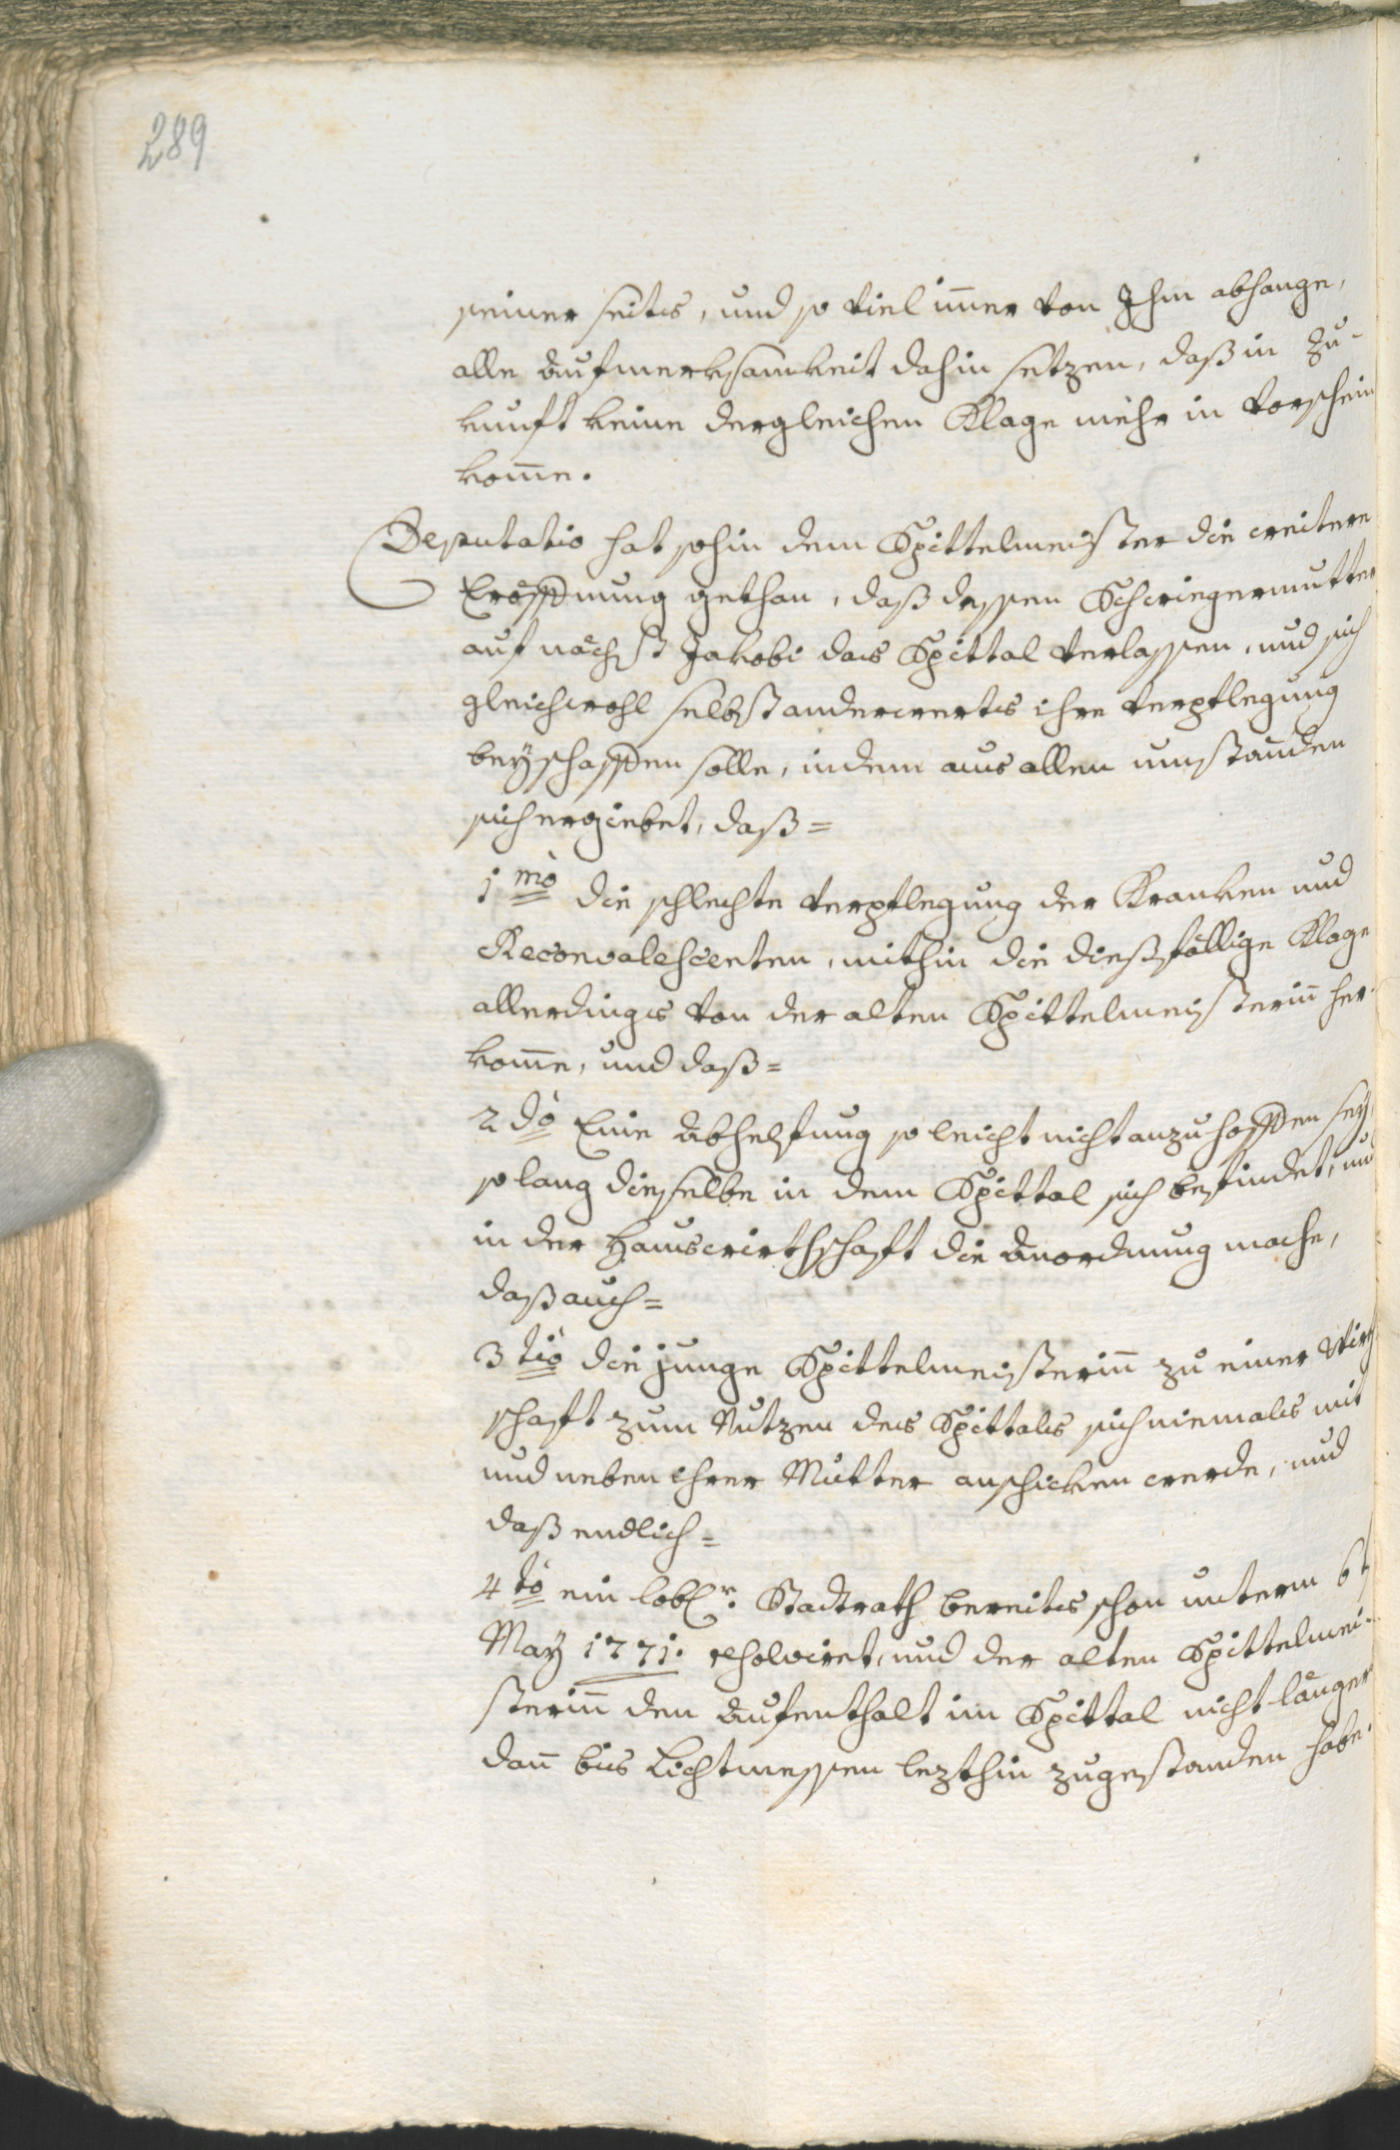 289
seiner seits, und so viel imer von Ihm abhange,
alle Aufmerksamkeit dahin setzen, daß in Zu-
kunft keine dergleichen Klage mehr in Vorschein
kome.
Deputatio hat sohin dem Spittelmeister die weitere
Eröffnung gethan, daß dessen Schwiegermutter
auf nächst Jakobi das Spittal verlassen, und sich
gleichwohl selbst anderwerts ihre Verpflegung
beyschaffen solle, indem aus allen umständen
sich ergiebet, daß=
1mò die schlechte Verpflegung der Kranken und
Reconvalescenten, mithin die dießfällige Klage
allerdings von der alten Spittelmeisterin her-
kome, und daß=
2dò Eine Abhelfung so leicht nicht anzuhoffen sey,
so lang dieselbe in dem Spittal sich befindet, und
in der Hauswirthschaft die Anordnung mache,
daß auch=
3tiò die junge Spittelmeisterin zu einer Wirth
schaft zum Nutzen des Spittals sich niemals mit
und neben ihrer Mutter anschicken werde, und
daß endlich=
4tò ein lobl.r Stadtrath bereits schon unterm 6t
May 1771. resolviret, und der alten Spittelmei-
sterin den Aufenthalt im Spittal nicht länger
dan bis Lichtmessen lezthin zugestanden habe.